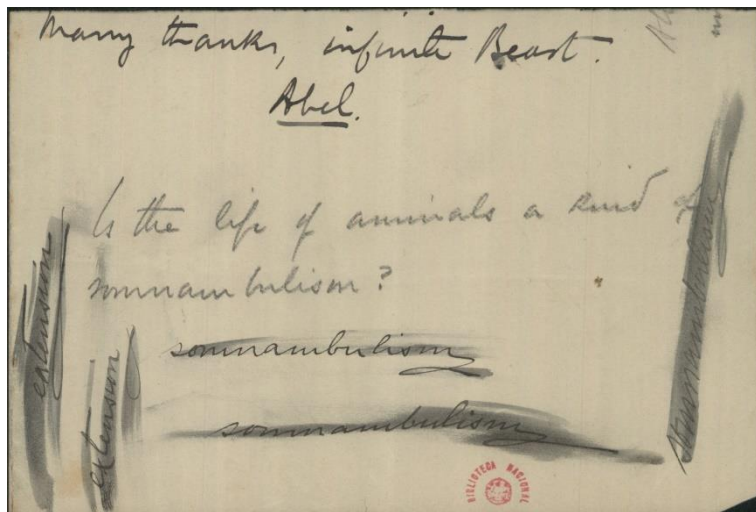 Many thanks, infinite Beast.
Abel.
Is the life of animals a kind of
somnambulism?
somnambulism
somnambulism
extension
extension
somnambulism
BIBLIOTECA NACIONAL